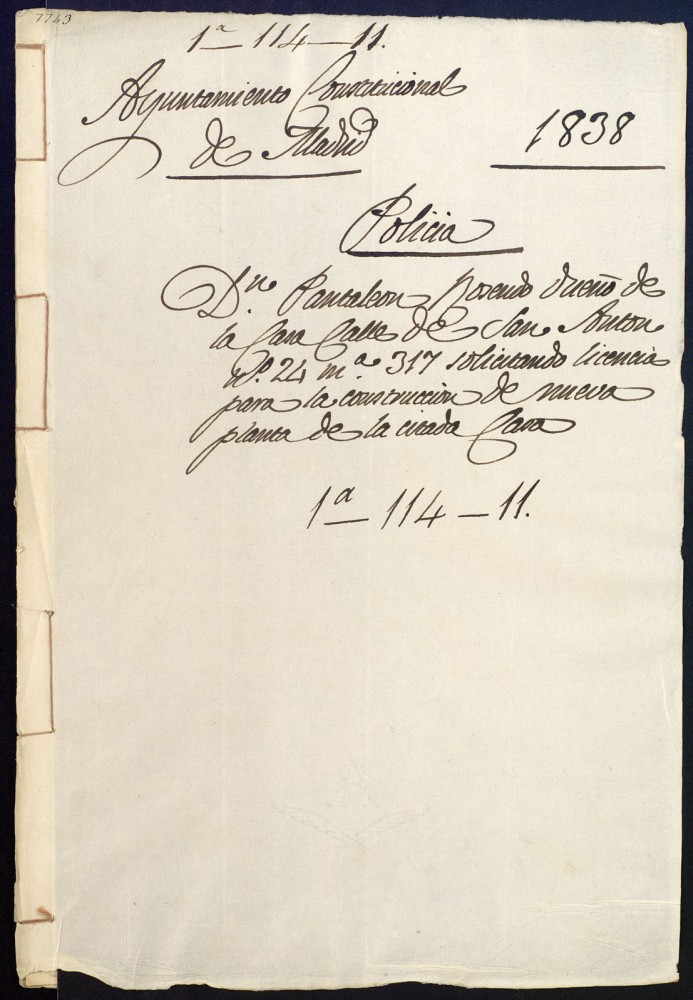 7743
1ª 114-11.
Ayuntamiento Constitucional
de Madrid
1838
Policia
Dn. Pantaleon Rosendo dueño de
la Casa Calle de San Anton
nº. 24 mª 317 solicitando licencia
para la construccion de nueva
planta de la citada Casa
1ª-114-11.